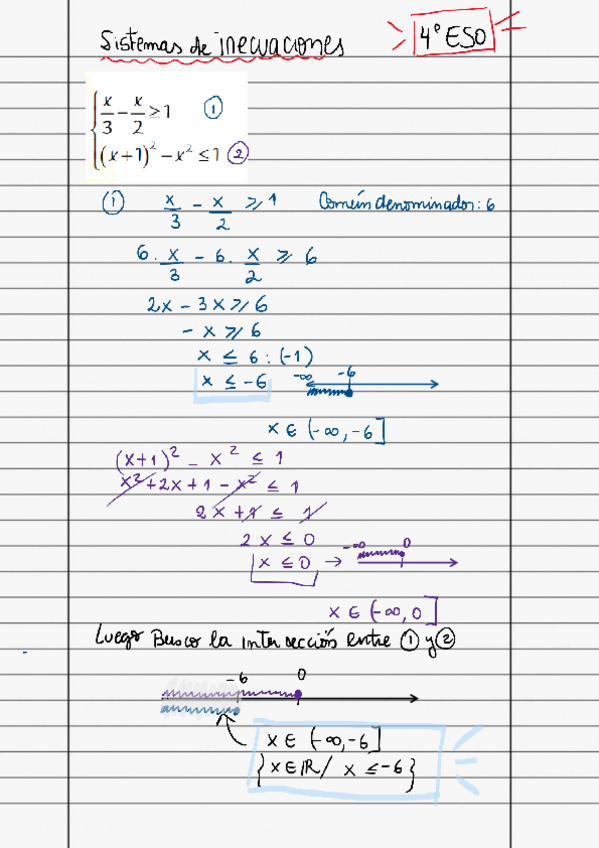 Sistemas de inecuaciones 4º ESO
x/3 − x/2 ≥ 1 ①
(x+1)² − x² ≤ 1 ②
① x/3 − x/2 ≥ 1 Común denominador: 6
6 · x/3 − 6 · x/2 ≥ 6
2x − 3x ≥ 6
− x ≥ 6
x ≤ 6 : (-1)
x ≤ −6 -∞ -6
x ∈ (-∞, -6]
(x+1)² − x² ≤ 1
x² + 2x + 1 − x² ≤ 1
2x + 1 ≤ 1
2x ≤ 0
x ≤ 0 → -∞ 0
x ∈ (-∞, 0]
Luego Busco la intersección entre ① y ②
-6 0
x ∈ (-∞, -6]
{x ∈ ℝ / x ≤ -6}